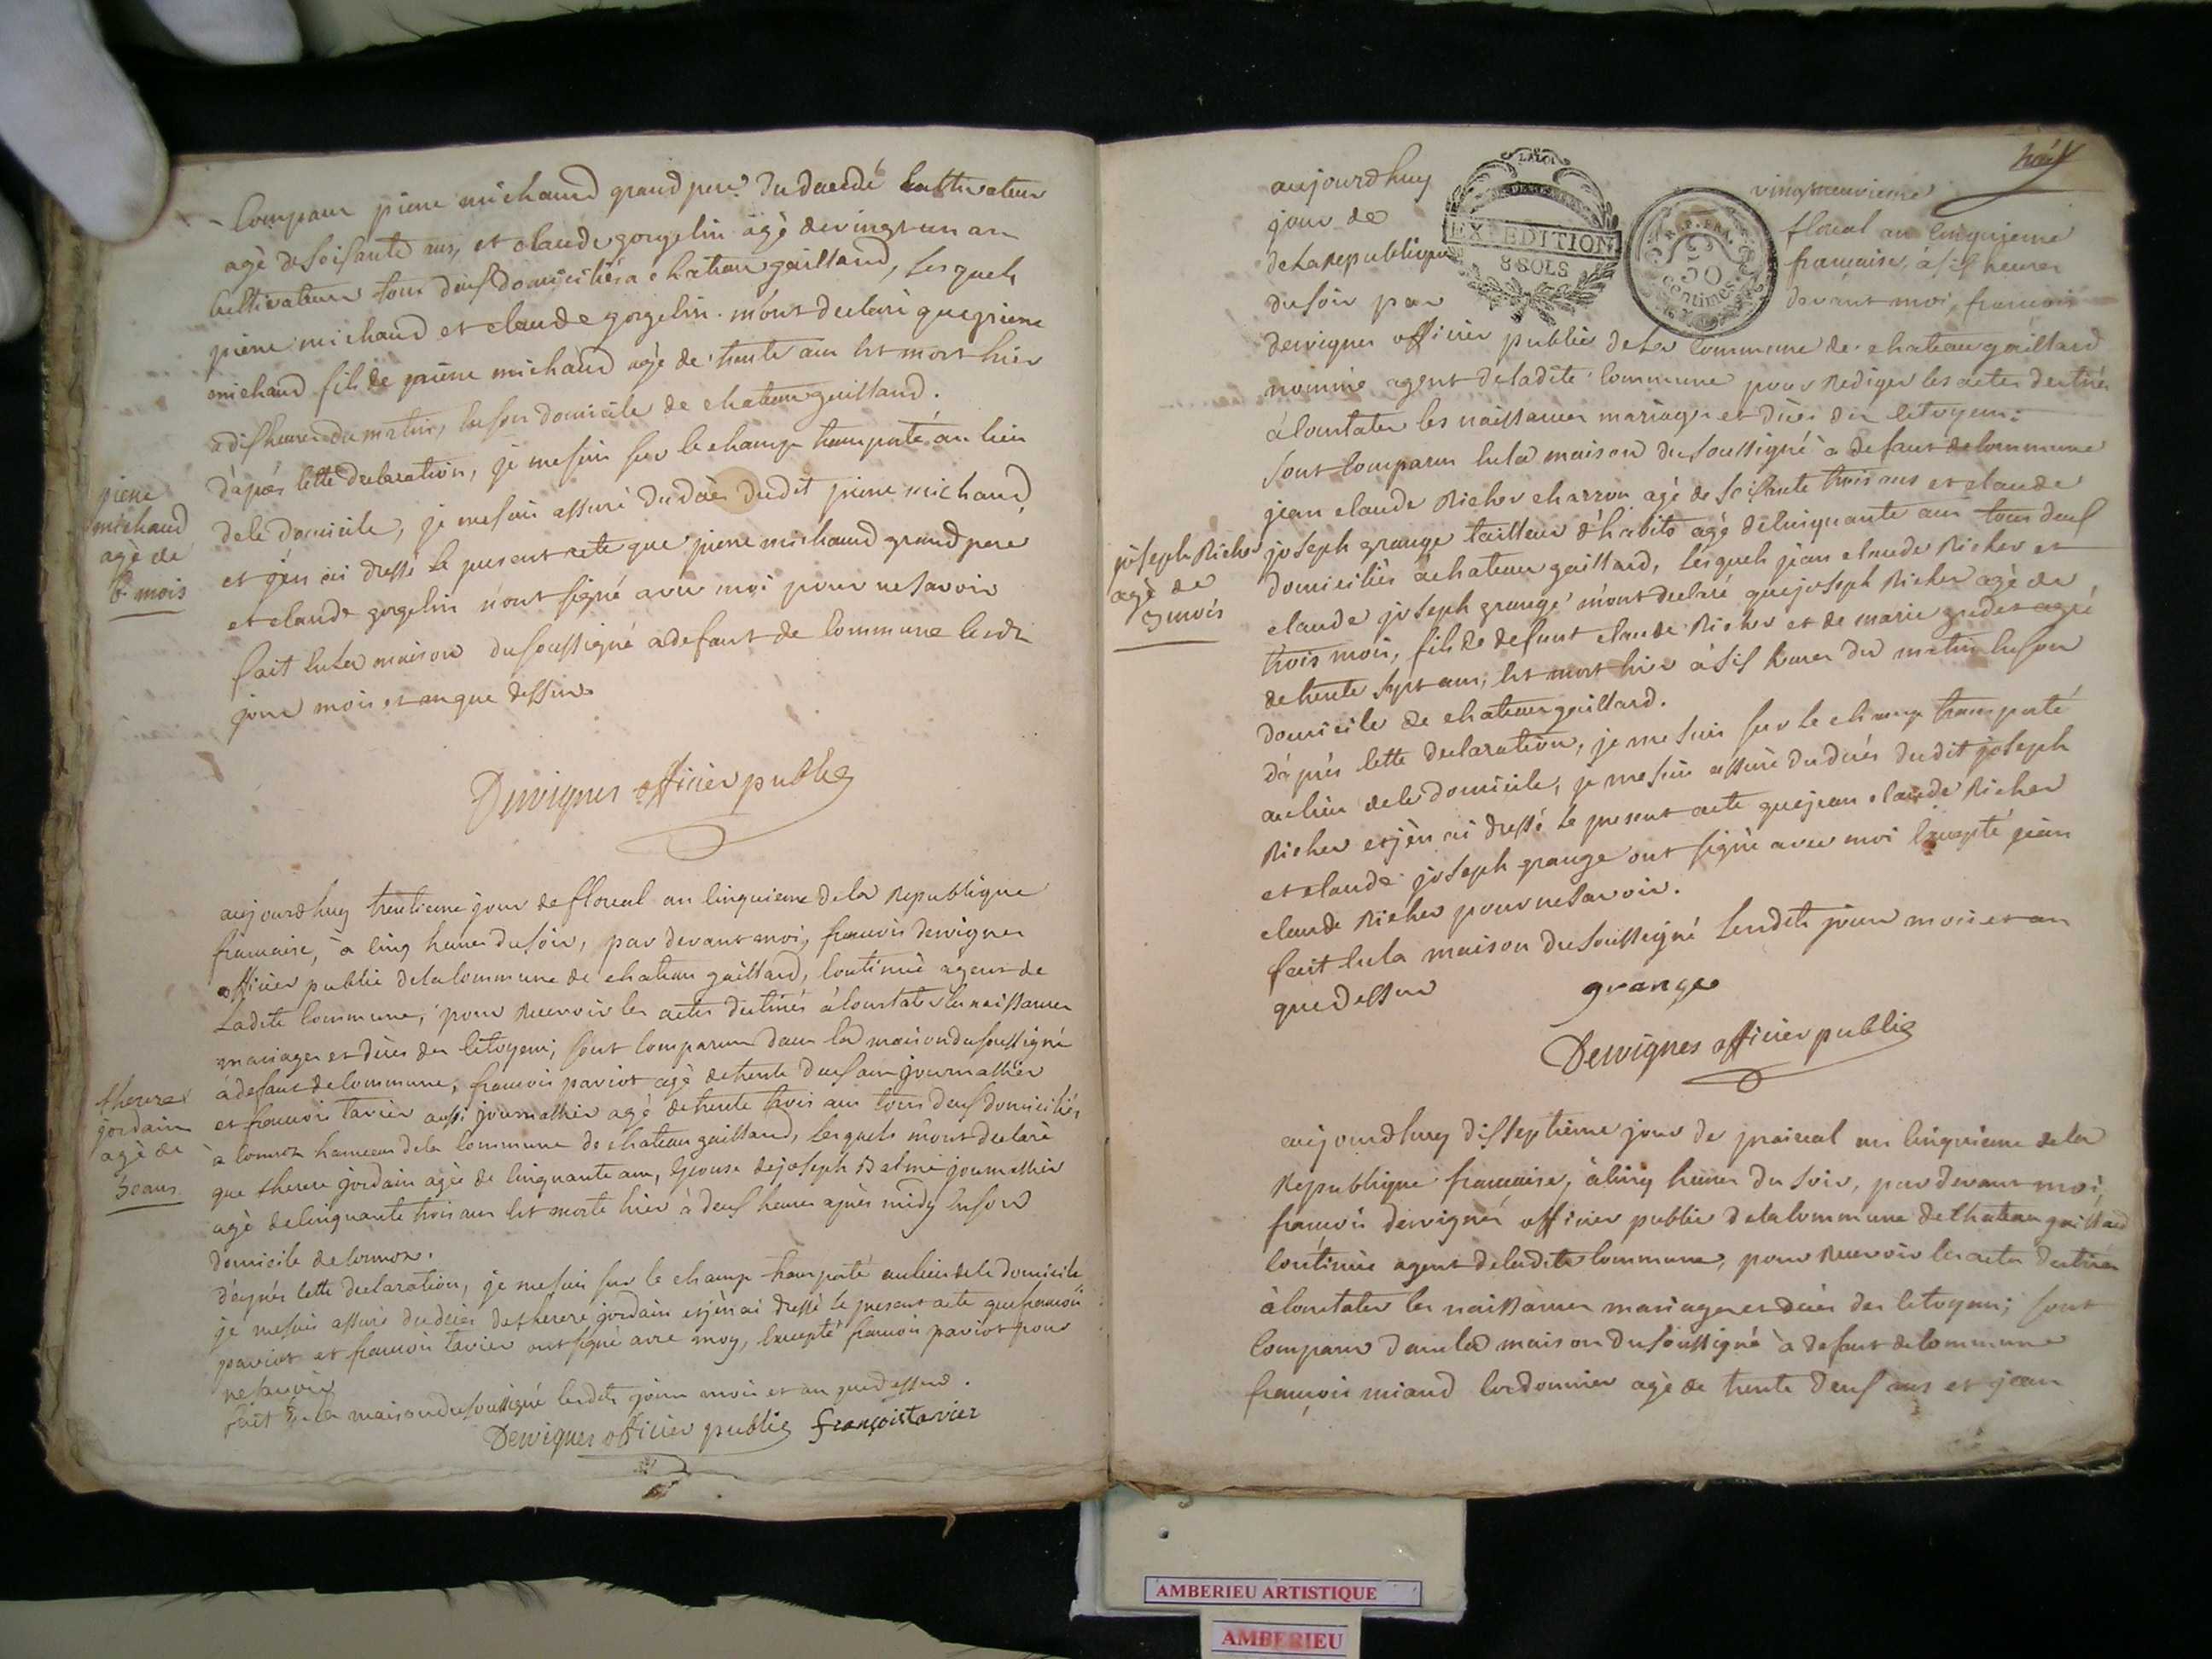 Comparu pierre michaud grand pere du decedé Cultivateur
agè de soisante ans, et claude gorgelin agè de vingt un an
Cultivateurs tous deus domiciliés a chateau gaillard, les quels
pierre michaud et claude gorgelin m'ont declaré que pierre
michaud fils de pierre michaud agè de trente ans est mort hier
a dis heures du matin, en son domicile de chateau gaillard.
d'apès cette declaration, je me suis sur le champ transporté au lieu
de ce domicile, je me suis assuré du dèces du dit pierre michaud
et j'en ai dressé le present acte que pierre michaud grand pere
et claude gorgelin n'ont signé avec moi pour ne savoir
fait en la maison du soussigné a defaut de commune les dits
jour mois et an que dessus
pierre
michaud
agè de
6 mois
Dervignes officier public
aujourdhuy trentieme jour de floreal an cinquieme de la Republique
francaise, à cinq heures du soir, par devant moi, francois dervignes
officier public de la commune de chateau gaillard, continué agent de
Ladite Commune, pour recevoir les actes destinés à constater les naissances
mariages et décés des citoyens; sont comparus dans la maison du soussigné
à defaut de commune, francois pariot agè de trente deus ans journallier
et francois tavier aussi journallier agè de trente trois ans tous deus domiciliés
à cormoz hameau de la commune de chateau gaillard, lesquels m'ont declaré
que therese jordain agèe de cinquante ans, Epouse de joseph Balme journallier
agè de cinquante trois ans est morte hier à deus heures apres midy en son
domicile de cormoz.
d'après cette declaration, je me suis sur le champ transporté au lieu de ce domicile
je me suis assuré du dèces de therese jordain et j'en ai dressé le present acte que francois
pariot et francois tavier ont signé avec moy, Excepté francois pariot pour
ne savoir
fait En la maison du soussigné les dits jour mois et an que dessus.
therese
jordain
agè de
50 ans
Dervignes officier public françois tavier
huit
aujourdhuy vingt neuvieme
jour de floreal an Cinquieme
de La republique francaise, à sis heures
du soir par devant moi, francois
LA LOI
EXPEDITION
8 SOLS
REP. FRA.
50
centimes
dervignes officier public de La Commune de chateau gaillard
nommé agent de ladite Commune pour Rediger les actes destinés
à Constater les naissances mariages et dèces des Citoyens:
Sont Comparus en la maison du soussigné à defaut de commune
jean claude Richer charron agè de soisante trois ans et claude
joseph grange tailleur d'habits agé de cinquante ans tous deus
domiciliés à chateau gaillard, lesquels jean claude Richer et
claude joseph grange m'ont declaré que joseph Richer agè de
trois mois, fils de defunt claude Richer et de marie godet agée
de trente sept ans, est mort hier à sis heures du matin en son
domicile de chateau gaillard.
d'après cette declaration, je me suis sur le champ transporté
au lieu de ce domicile, je me suis assuré du décés du dit joseph
Richer et j'en ai dressé le present acte que jean claude Richer
et claude joseph grange ont signé avec moi Excepté jean
claude Richer pour ne savoir.
fait En la maison du soussigné Lesdits jour mois et an
que dessus
joseph Richer
agé de
3 mois
grange
Dervignes officier public
aujourdhuy dis septieme jour de prairial an Cinquieme de la
Republique francaise, à cinq heures du soir, par devant moi,
francois dervignes officier public de la Commune de chateau gaillard
Continué agent de ladite Commune, pour recevoir les actes destinés
à Constater les naissances mariages et décés des Citoyens; sont
Comparus dans la maison du soussigné à defaut de Commune
francois miand Cordonnier agè de trente deus ans et jean
AMBERIEU ARTISTIQUE
AMBERIEU